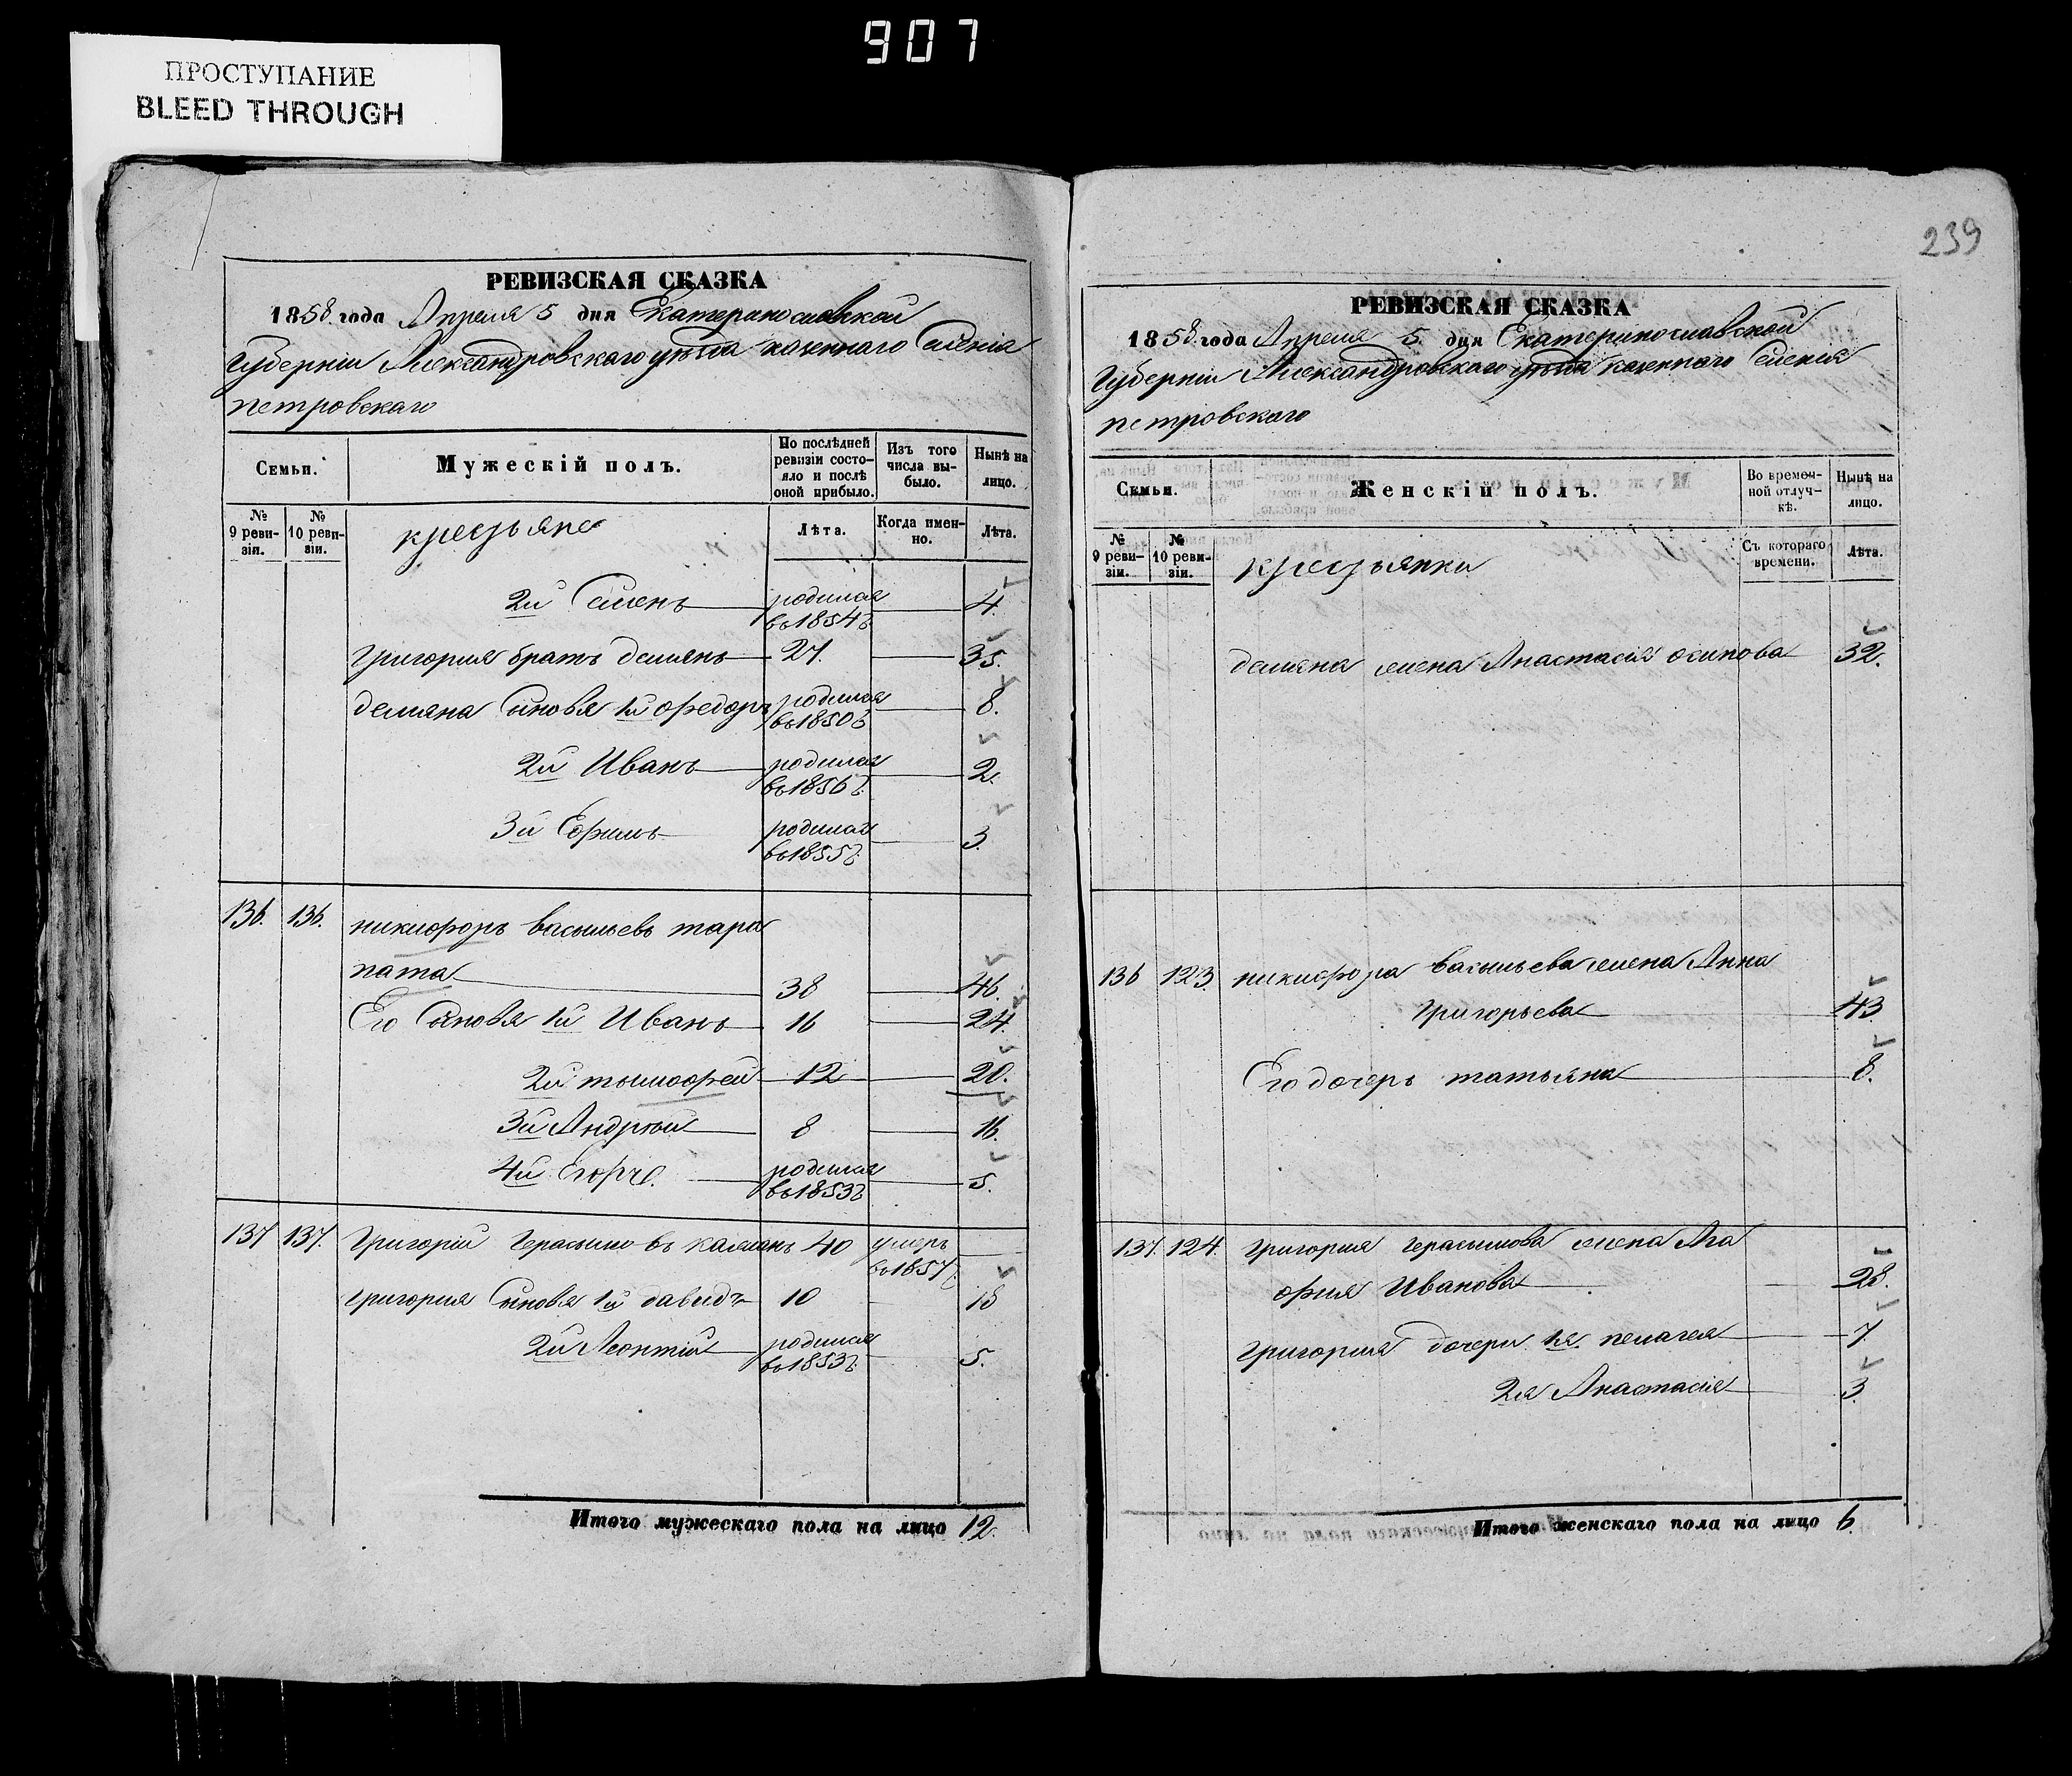 907
ПРОСТУПАНИЕ
BLEED THROUGH
РЕВИЗСКАЯ СКАЗКА
1858 года Апреля 5 дня Екатеринославской
Губерніи Александровскаго уѣзда казеннаго Селенія
петровскаго
Семьи.
Мужескій полъ.
По послѣдней ревизіи состояло и послѣ оной прибыло.
Изъ того числа выбыло.
Нынѣ на лицо.
№ 9 ревизіи.
№ 10 ревизіи.
крестьяне
Лѣта.
Когда именно.
Лѣта.
2й Семенъ родился в 1854 г. 4.
Григорія братъ демянъ 27. 35.
демяна Сыновя 1й Федоръ родился в 1850 г. 8.
2й Иванъ родился в 1856 г. 2.
3й Ефимъ родился в 1855 г. 3.
136. 136. никифоръ васыльевъ тара
пата 38 46.
Его Сыновя 1й Иванъ 16 24.
2й тымофей 12 20.
3й Андрей 8 16.
4й родился в 1853 г. 5.
137 137. Григорій Герасымовъ 40 умеръ в 1857 г.
Григорія Сыновя 1й давыдъ 10 18
2й Леонтій родился в 1853 г. 5.
Итого мужескаго пола на лицо 12.
239
РЕВИЗСКАЯ СКАЗКА
1858 года Апреля 5 дня Екатеринославской
Губерніи Александровскаго уѣзда казеннаго Селенія
петровскаго
Семьи.
Женскій полъ.
Во временной отлучкѣ.
Нынѣ на лицо.
№ 9 ревизіи.
№ 10 ревизіи.
крестьянки
Съ котораго времени.
Лѣта.
демяна жена Анастасія осипова 32.
136 123. никифора васыльева жена Анна
Григорьева 43
Его дочерь татьяна 8.
137. 124. Григорія герасымова жена Ага
фия Иванова 28.
Григорія дочери 1я. пелагея 7
2я Анастасія 3.
Итого женскаго пола на лицо 6